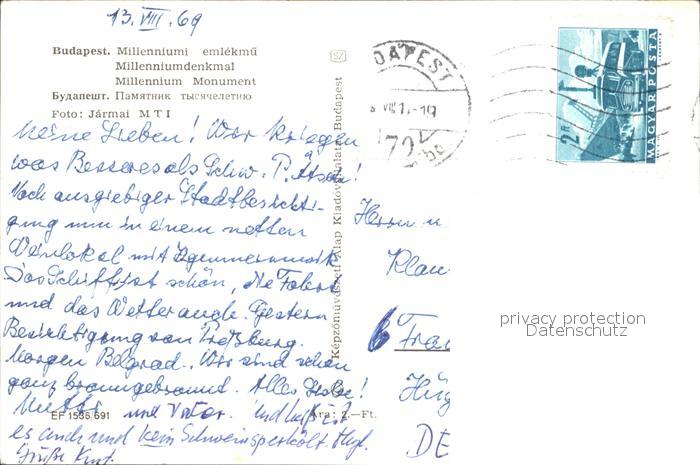 13. VIII. 69
Budapest. Millenniumi emlékmű
Millenniumdenkmal
Millennium Monument
Будапешт. Памятник тысячелетию
Foto: Jármai MTI
Meine Lieben! Wir kriegen
was Besseres als Schw. P.
Nach ausgiebiger Stadtbesichti-
gung nun in einem netten
Weinlokal mit Zigeunermusik
Das Schiff ist schön, die Fahrt
und das Wetter auch. Gestern
Besichtigung von Preßburg.
Morgen Belgrad. Wir sind schon
ganz braungebrannt. Alles Liebe!
Mutti und Vater.
es auch und kein Schweinsperkölt.
Grüße Kurt.
EF 1536/691
Ára: 2.–Ft.
Képzőművészeti Alap Kiadóvállalata, Budapest
SZ
DAPEST
72
2 Ft
MAGYAR POSTA
Herrn u
Klau
6 Fran
Hüg
DE
privacy protection
Datenschutz